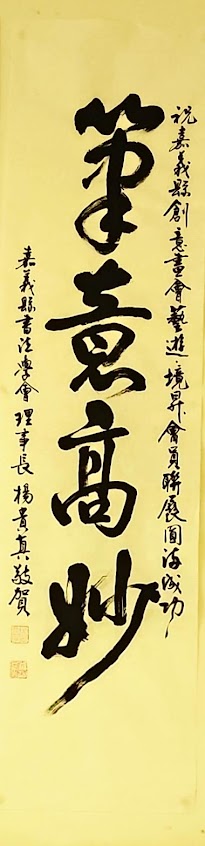 祝嘉義縣創意畫會藝遊境昇會員聯展圓滿成功
筆意高妙
嘉義縣書法學會理事長楊貴真敬賀